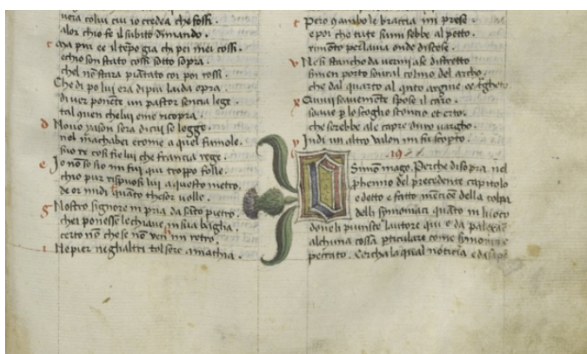 colui cui io credea che fossi.
alor chio fe il subito dimando.
ma piu ee il tempo gia ch pei mei cossi
echio son stato cossi sotto sopra.
chel non stara piantato coi poi rossi.
Che di po lui era di piu laida opra
di ver ponente un pastor sencia lege
tal quen che lui e me ricopra.
Nouo yason sera di cui se legge
nel machabei e come a quel
suo re cosi fie lui che francia rege.
Jo non so sio mi fui qui troppo folle.
chio pur rispuosi lui a questo metro.
de or mi di quanto thesor uolle
Nostro signore in pria da santo pietro.
chei ponesse le chiaue in sua baglia.
certo non chese non ven mi retro.
Ne pier ne ghaltri tolsere a mathia.
Pero ch ambo le braccia mi prese
e poi che tute si mi sobbe al petto.
rimonto per la via onde discese.
Ne si stancho da uermi a se distretto
si men porto soural colmo del archo
che dal quarto al quinto argine e
Quiui soauemente spose il carco.
soaue p lo scoglio sconcio et erto.
che serebbe ale capre duro uargho.
Indi un altro ualon mi fu scopto
19
Simon mago. Perche di sopra nel
phemio del precedente capitulo
e dotto e fatto mencion della colpa
delli symoniaci quanto in luoco
doue li punisse lautore qui e da
alchuna cossa pticulare come
peccato. Cercha la qual noticia e da